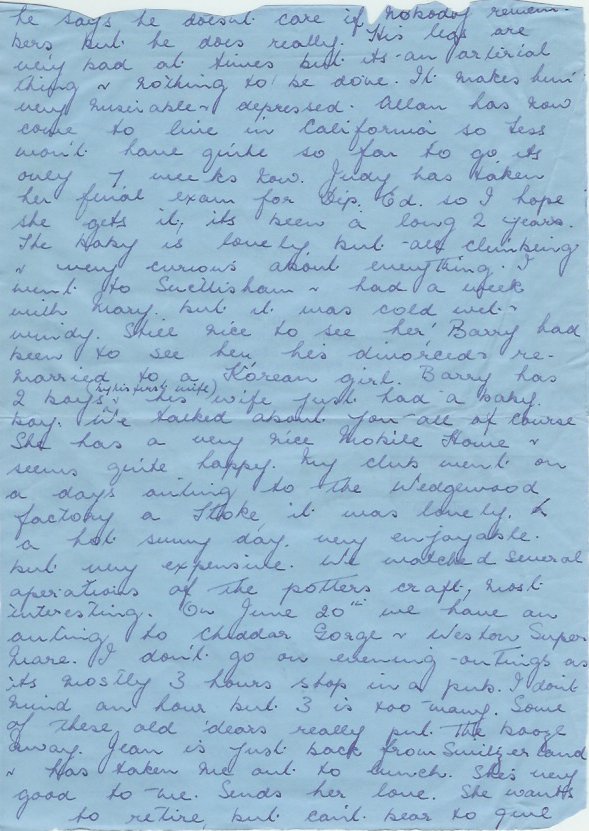 he says he doesnt care if nobody remem-
bers but he does really. His legs are
very bad at times but its an arterial
thing & nothing to be done. It makes him
very miserable & depressed. Allan has now
come to live in California so Less
won't have quite so far to go its
only 7 weeks now. Judy has taken
her final exam for Dip. Ed. so I hope
she gets it, its been a long 2 years.
The baby is lovely but all climbing
& very curious about everything. I
went to & had a week
with Mary but it was cold wet &
windy. Still nice to see her. Barry had
been to see her, his divorced & re-
married to a Korean girl. Barry has
2 boys (by his first wife) & his wife just had a baby
boy. We talked about you all of course
She has a very nice Mobile Home &
seems quite happy. My club went on
a days outing to the Wedgewood
factory a Stoke it was lovely, &
a hot sunny day, very enjoyable.
but very expensive. We watched several
operations of the potters craft, most
interesting. On June 20th we have an
outing to Cheddar Gorge & Weston Super
Mare. I don't go on evening outings as
its mostly 3 hours stop in a pub. I don't
mind an hour but 3 is too many. Some
of these old dears really put the booze
away. Jean is just back from Switzerland
& has taken me out to lunch. She's very
good to me. Sends her love. She wants
to retire, but can't bear to give